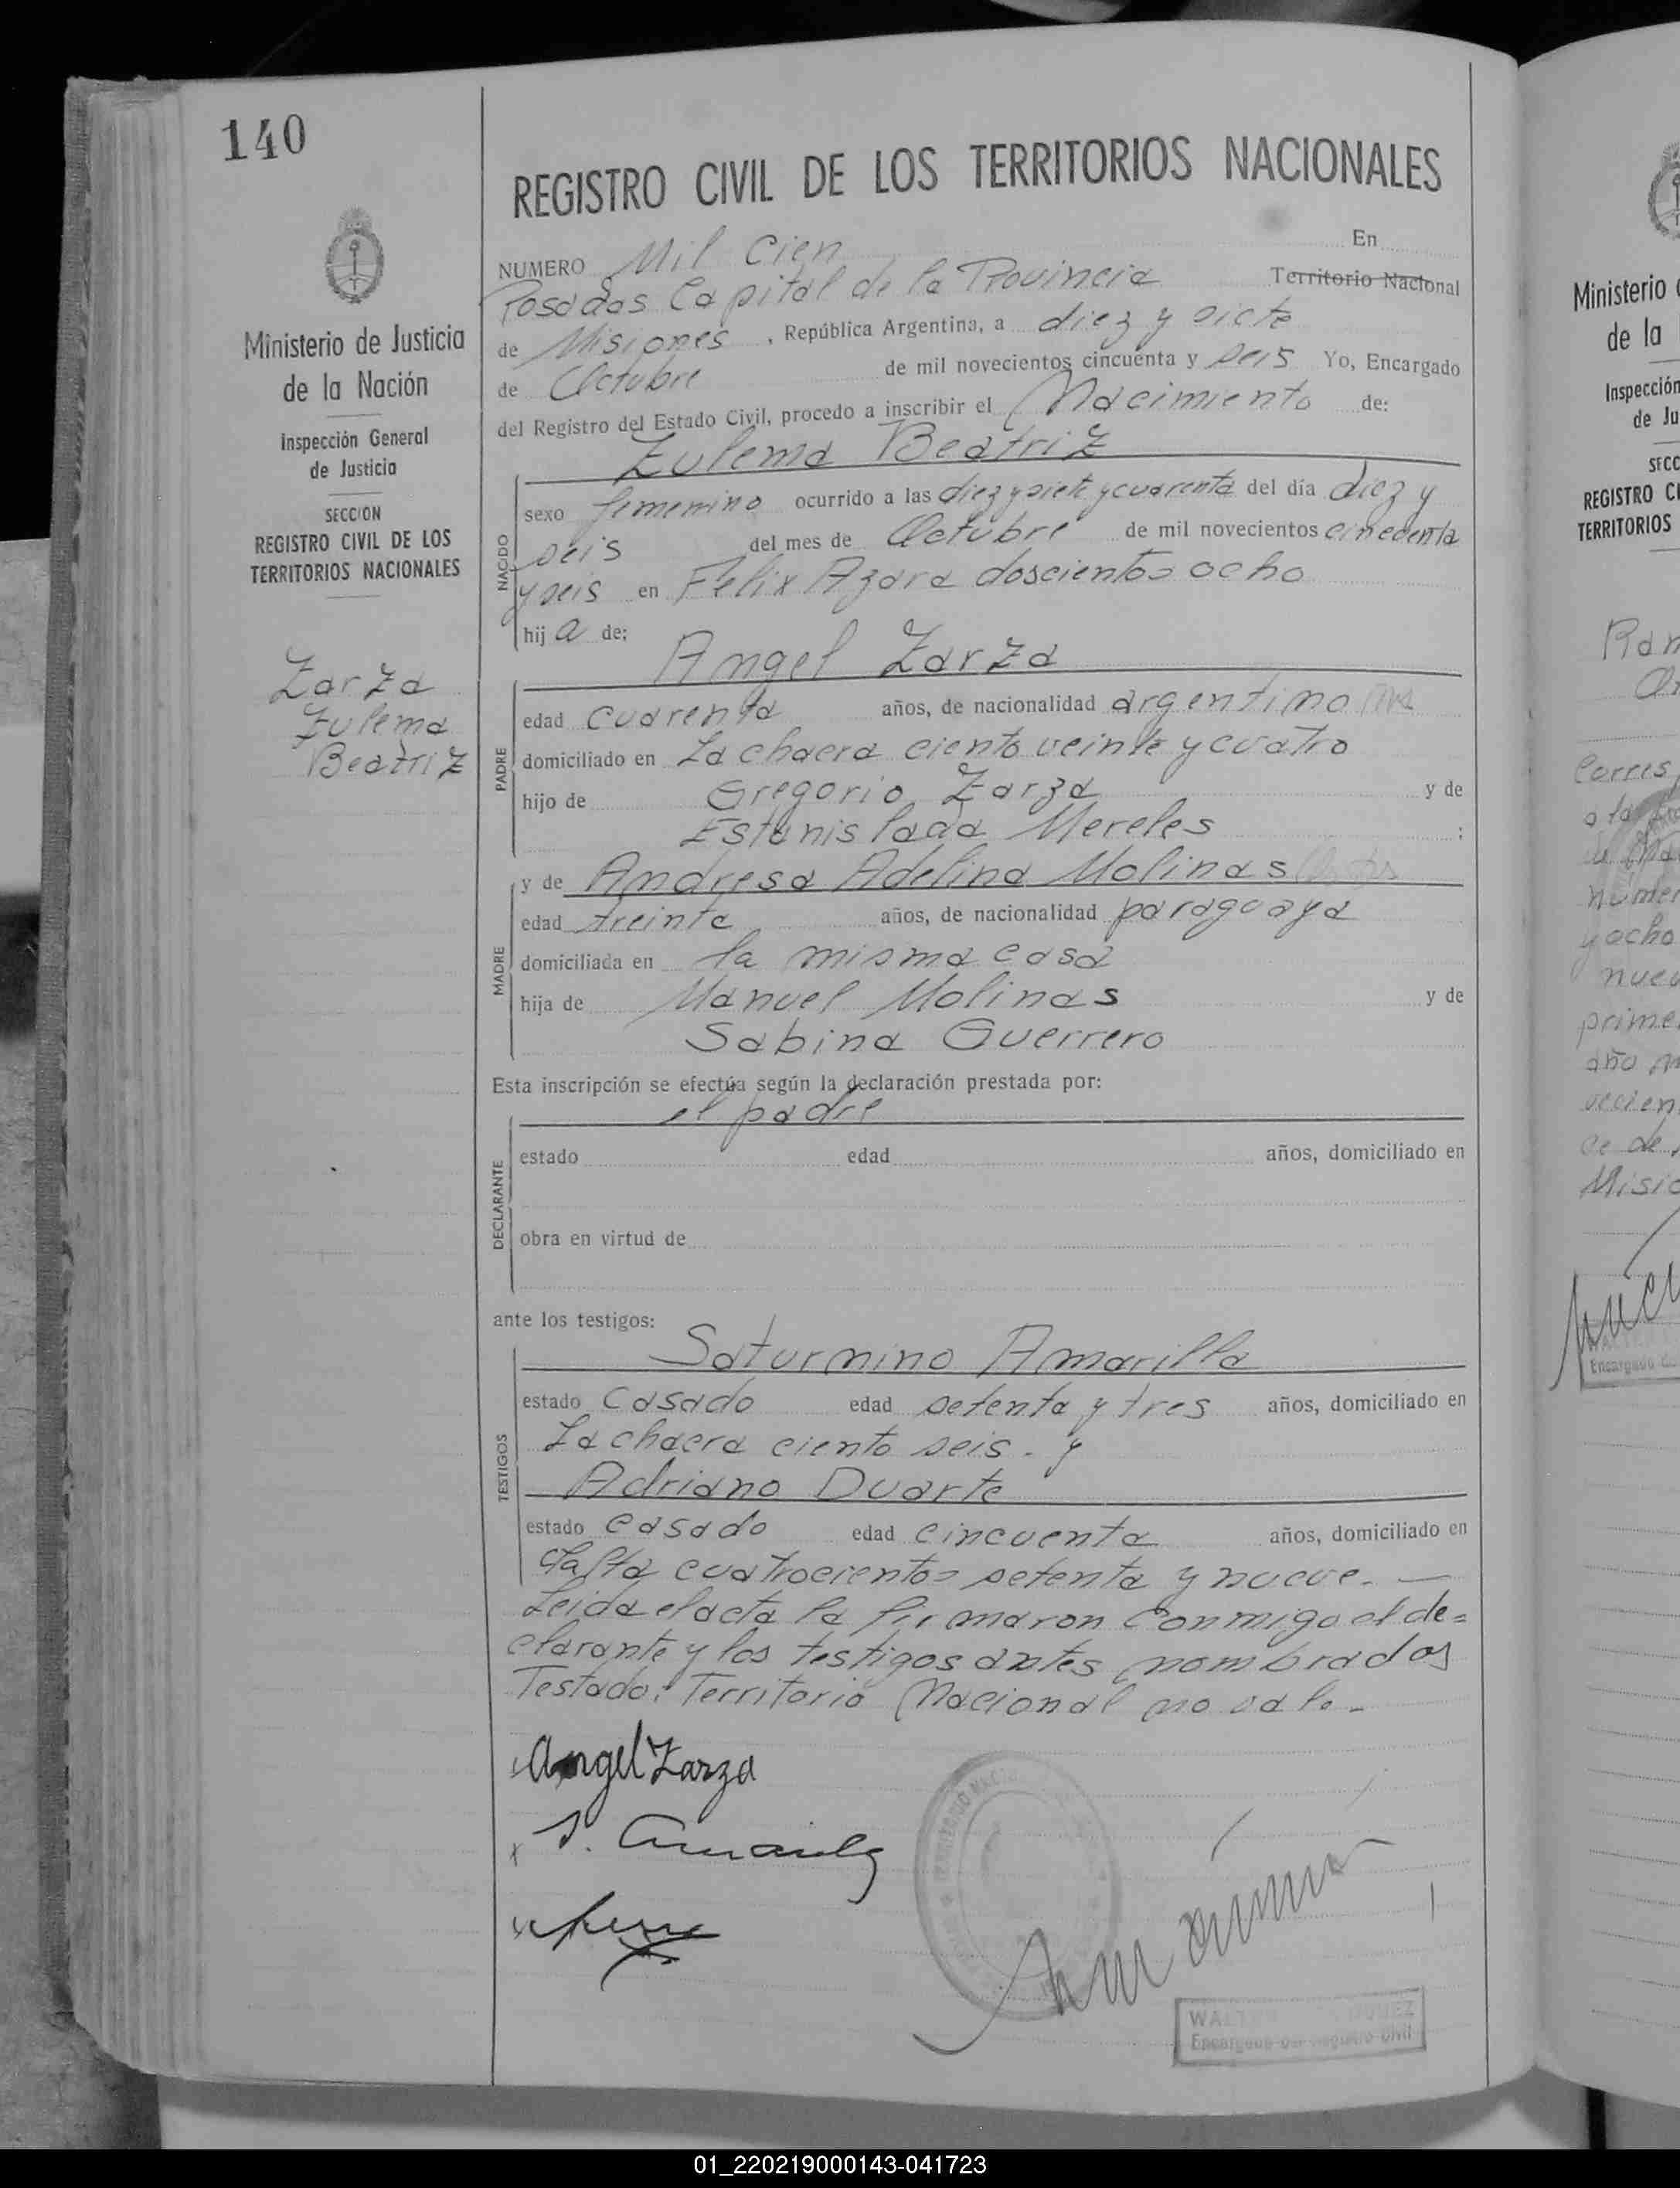 140
REGISTRO CIVIL DE LOS TERRITORIOS NACIONALES
NUMERO Mil Cien En
Posadas Capital de la Provincia Territorio Nacional
de Misiones, República Argentina, a diez y siete
de Octubre de mil novecientos cincuenta y seis Yo, Encargado
del Registro del Estado Civil, procedo a inscribir el Nacimiento de:
Zulema Beatriz
NACIDO
sexo femenino ocurrido a las diez y siete y cuarenta del día diez y
seis del mes de Octubre de mil novecientos cincuenta
y seis en Felix Azara doscientos ocho
hija de:
Angel Zarza
PADRE
edad cuarenta años, de nacionalidad argentino
domiciliado en La chacra ciento veinte y cuatro
hijo de Gregorio Zarza y de
Estanislada Mereles ;
MADRE
y de Andresa Adelina Molinas
edad treinta años, de nacionalidad paraguaya
domiciliada en la misma casa
hija de Manuel Molinas y de
Sabina Guerrero
Esta inscripción se efectúa según la declaración prestada por:
el padre
DECLARANTE
estado edad años, domiciliado en
obra en virtud de
ante los testigos:
Saturnino Amarilla
TESTIGOS
estado casado edad setenta y tres años, domiciliado en
La chacra ciento seis. y
Adriano Duarte
estado casado edad cincuenta años, domiciliado en
cuatrocientos setenta y nueve. —
Leida el acta la firmaron conmigo el de=
clarante y los testigos antes nombrados
Testado: Territorio Nacional no vale. -
Angel Zarza
S. Amarilla
WALTER
Encargado del Registro Civil
Ministerio de Justicia
de la Nación
Inspección General
de Justicia
SECCION
REGISTRO CIVIL DE LOS
TERRITORIOS NACIONALES
Zarza
Zulema
Beatriz
Ministerio
de la
Inspección
de Ju
SECC
REGISTRO CI
TERRITORIOS
Corres
a la
numer
y ocho
nueve
prime
año
vecien
ce de
Misio
Encargado de
01_220219000143-041723